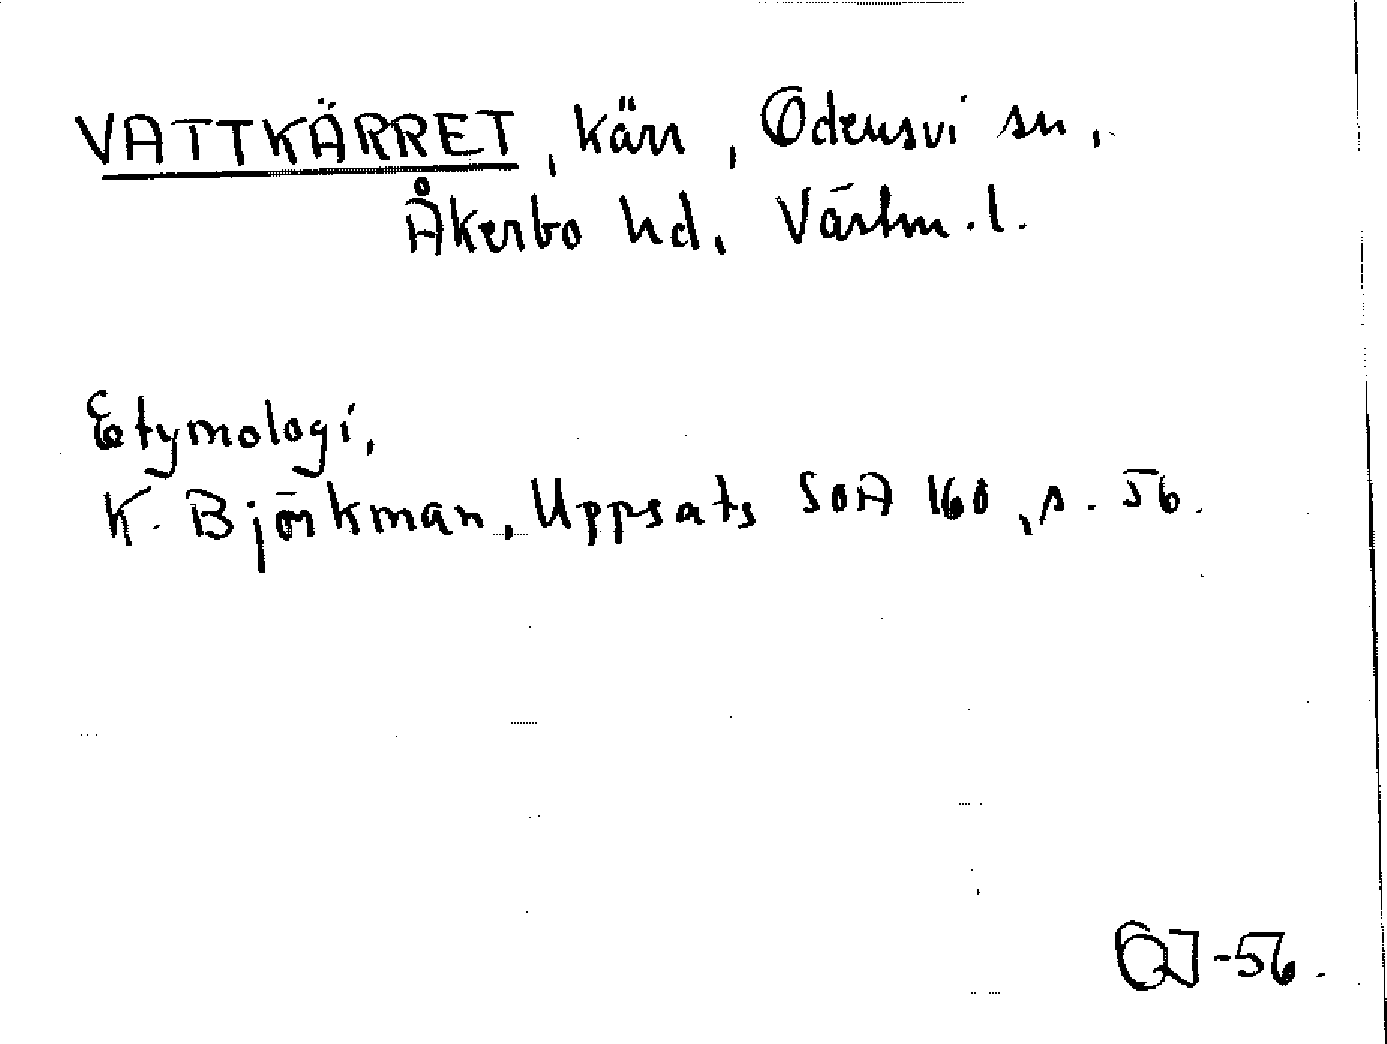 VATTKÄRRET, kärr, Odensvi sn,
Åkerbo hd, Västm.l.
Etymologi,
K. Björkman, Uppsats SOA 160, s. 56.
OJ-56.